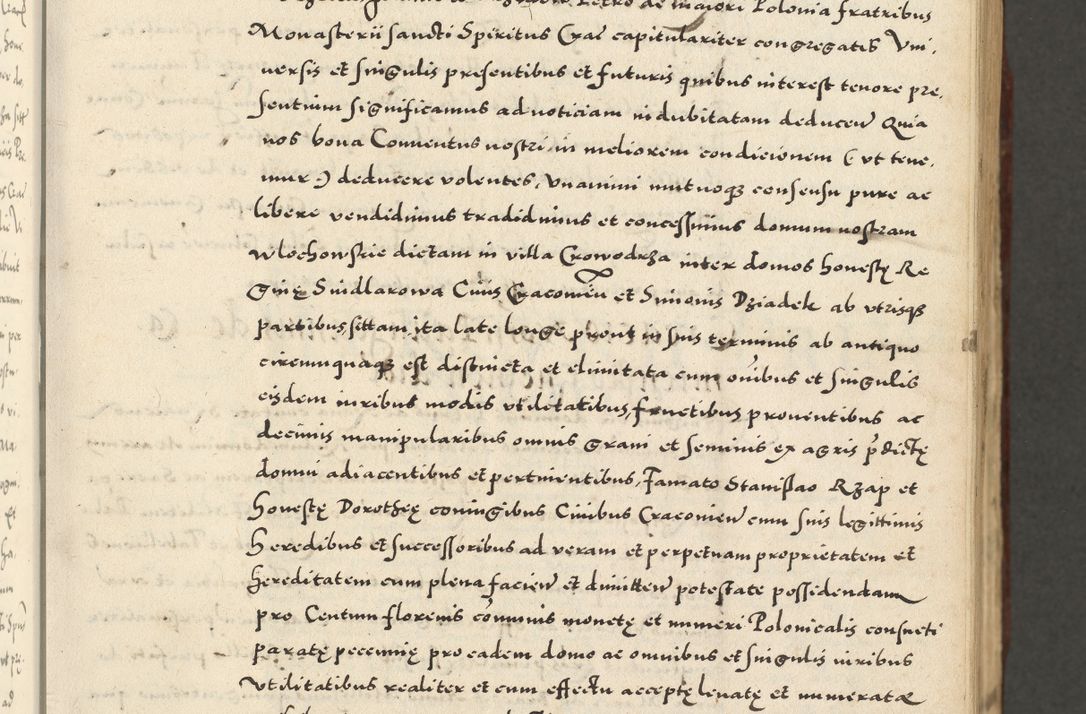 Petro de maiori Polonia fratribus
Monasterii sancti Spiritus Crac capitulariter congregatis Vni,
uersis et singulis presentibus et futuris quibus interest tenore pre,
sentium significamus ad noticiam indubitatam deducen Quia
nos bona Conuentus nostri in meliorem condicionem (ut tene,
mur:) deducere volentes, Vnanimi mutuoq consensu pure ac
libere vendidimus tradidimus et concessimus domum nostram
Wlochowskie dictam in villa Crowodrza inter domos honestę Re
ginę Smidlarowa Ciuis Cracouien et Simonis Dziadek ab vtrisq
partibus sittam, ita late longe prout in suis terminis ab antiquo
circumquaq est distincta et elimitata cum omibus et singulis
eisdem iuribus modis vtilitatibus, fructibus prouentibus ac
decimis manipularibus omnis grani et seminis ex agris pdictę
domui adiacentibus et pertinentibus, Famato Stanislao Rzap et
honestę Dorotheę coniugibus Ciuibus Cracouien cum suis legittimis
heredibus et successoribus ad veram et perpetuam proprietatem et
hereditatem cum plena facien et dimitten potestate possidendam
pro Centum florenis comunis monetę et numeri Polonicalis consueti
paratę pecunię pro eadem domo ac omnibus et singulis iuribus
Vtilitatibus realiter et cum effectu acceptę leuatę et numeratæ